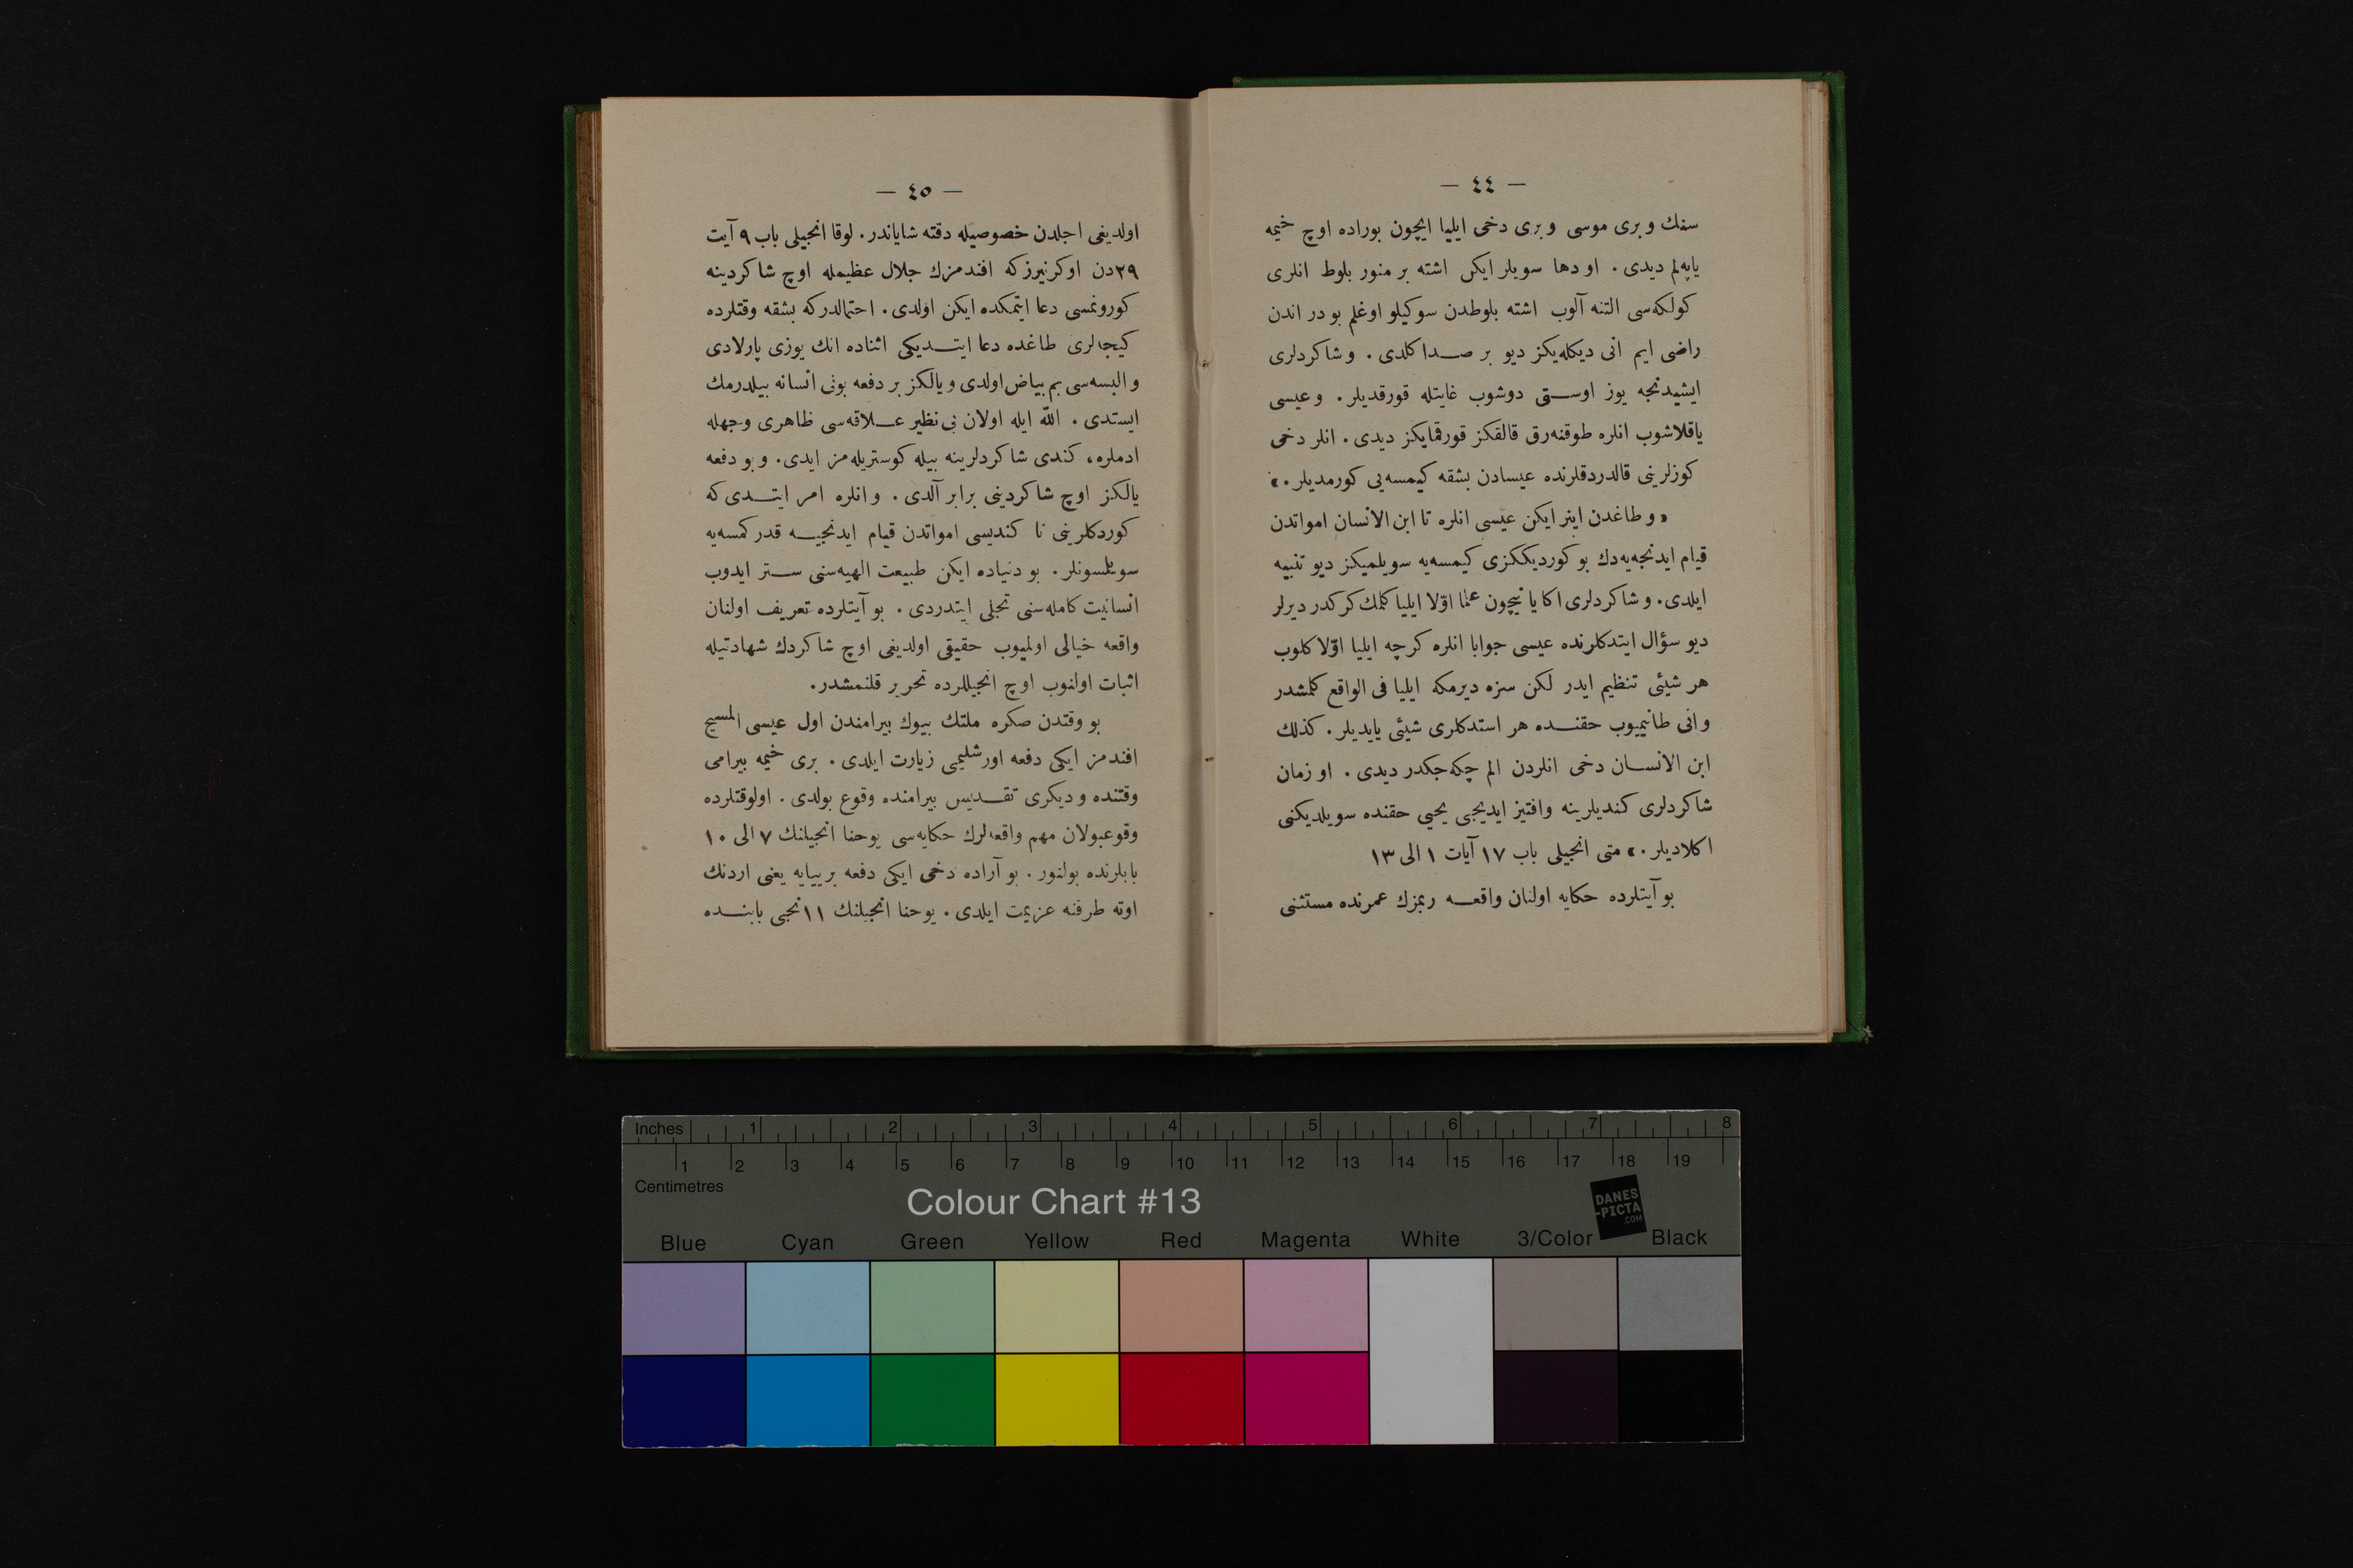 — ٤٤ —
سنك و بری موسی و بری دخی ایلیا ایچون بوراده اوچ خیمه
یاپه‌لم دیدی . او دها سویلر ایكن اشته بر منور بلوط انلری
كولكه‌سی التنه آلوب اشته بلوطدن سوكیلو اوغلم بو در اندن
راضی ایم انی دیكله‌یكز دیو بر صدا كلدی . و شاكردلری
ایشیدنجه یوز اوستی دوشوب غایتله قورقدیلر . و عیسی
یاقلاشوب انلره طوقنه‌رق قالقكز قورقمایكز دیدی . انلر دخی
كوزلرینی قالدردقلرنده عیسادن بشقه كیمسه‌یی كورمدیلر . »
« و طاغدن اینر ایكن عیسی انلره تا ابن الانسان امواتدن
قیام ایدنجه‌یه‌دك بو كوردیككزی كیمسه‌یه سویلمیكز دیو تنبیه
ایلدی . و شاكردلری اكا یا نیچون علما اوّلا ایلیا كلمك كركدر دیرلر
دیو سؤال ایتدكلرنده عیسی جوابا انلره كرچه ایلیا اوّلا كلوب
هر شیئی تنظیم ایدر لكن سزه دیرمكه ایلیا فی الواقع كلمشدر
و انی طانیمیوب حقنده هر استدكلری شیئی یاپدیلر . كذلك
ابن الانسان دخی انلردن الم چكه‌جكدر دیدی . او زمان
شاكردلری كندیلرینه وافتیز ایدیجی یحیی حقنده سویلدیكنی
اكلادیلر . » متی انجیلی باب ١٧ آیات ١ الی ١٣
بو آیتلرده حكایه اولنان واقعه ربمزك عمرنده مستثنی
— ٤٥ —
اولدیغی اجلدن خصوصیله دقته شایاندر . لوقا انجیلی باب ٩ آیت
٢٩دن اوكرنیرزكه افندمزك جلال عظیمله اوچ شاكردینه
كورونمسی دعا ایتمكده ایكن اولدی . احتمالدركه بشقه وقتلرده
كیجه‌لری طاغده دعا ایتدیكی اثناده انك یوزی پارلادی
و البسه‌سی بم بیاض اولدی و یالكز بر دفعه بونی انسانه بیلدرمك
ایستدی . اللّه ایله اولان بی نظیر علاقه‌سی ظاهری وجهله
ادملره، كندی شاكردلرینه بیله كوستریله‌مز ایدی . و بو دفعه
یالكز اوچ شاكردینی برابر آلدی . و انلره امر ایتدی كه
كوردكلرینی تا كندیسی امواتدن قیام ایدنجیه قدر كمسه‌یه
سویلمسونلر . بو دنیاده ایكن طبیعت الهیه‌سنی ستر ایدوب
انسانیت كامله‌سنی تجلی ایتدردی . بو آیتلرده تعریف اولنان
واقعه خیالی اولمیوب حقیقی اولدیغی اوچ شاكردك شهادتیله
اثبات اولنوب اوچ انجیللرده تحریر قلنمشدر .
بو وقتدن صكره ملتك بیوك بیرامندن اول عیسی المسیح
افندمز ایكی دفعه اورشلیمی زیارت ایلدی . بری خیمه بیرامی
وقتنده و دیكری تقدیس بیرامنده وقوع بولدی . اولوقتلرده
وقوعبولان مهم واقعه‌لرك حكایه‌سی یوحنا انجیلنك ٧ الی ١٠
بابلرنده بولنور . بو آراده دخی ایكی دفعه برییایه یعنی اردنك
اوته طرفنه عزیمت ایلدی . یوحنا انجیلنك ١١نجی بابنده
Inches 1 2 3 4 5 6 7 8
1 2 3 4 5 6 7 8 9 10 11 12 13 14 15 16 17 18 19
Centimetres
Colour Chart #13
DANES
-PICTA
.COM
Blue Cyan Green Yellow Red Magenta White 3/Color Black